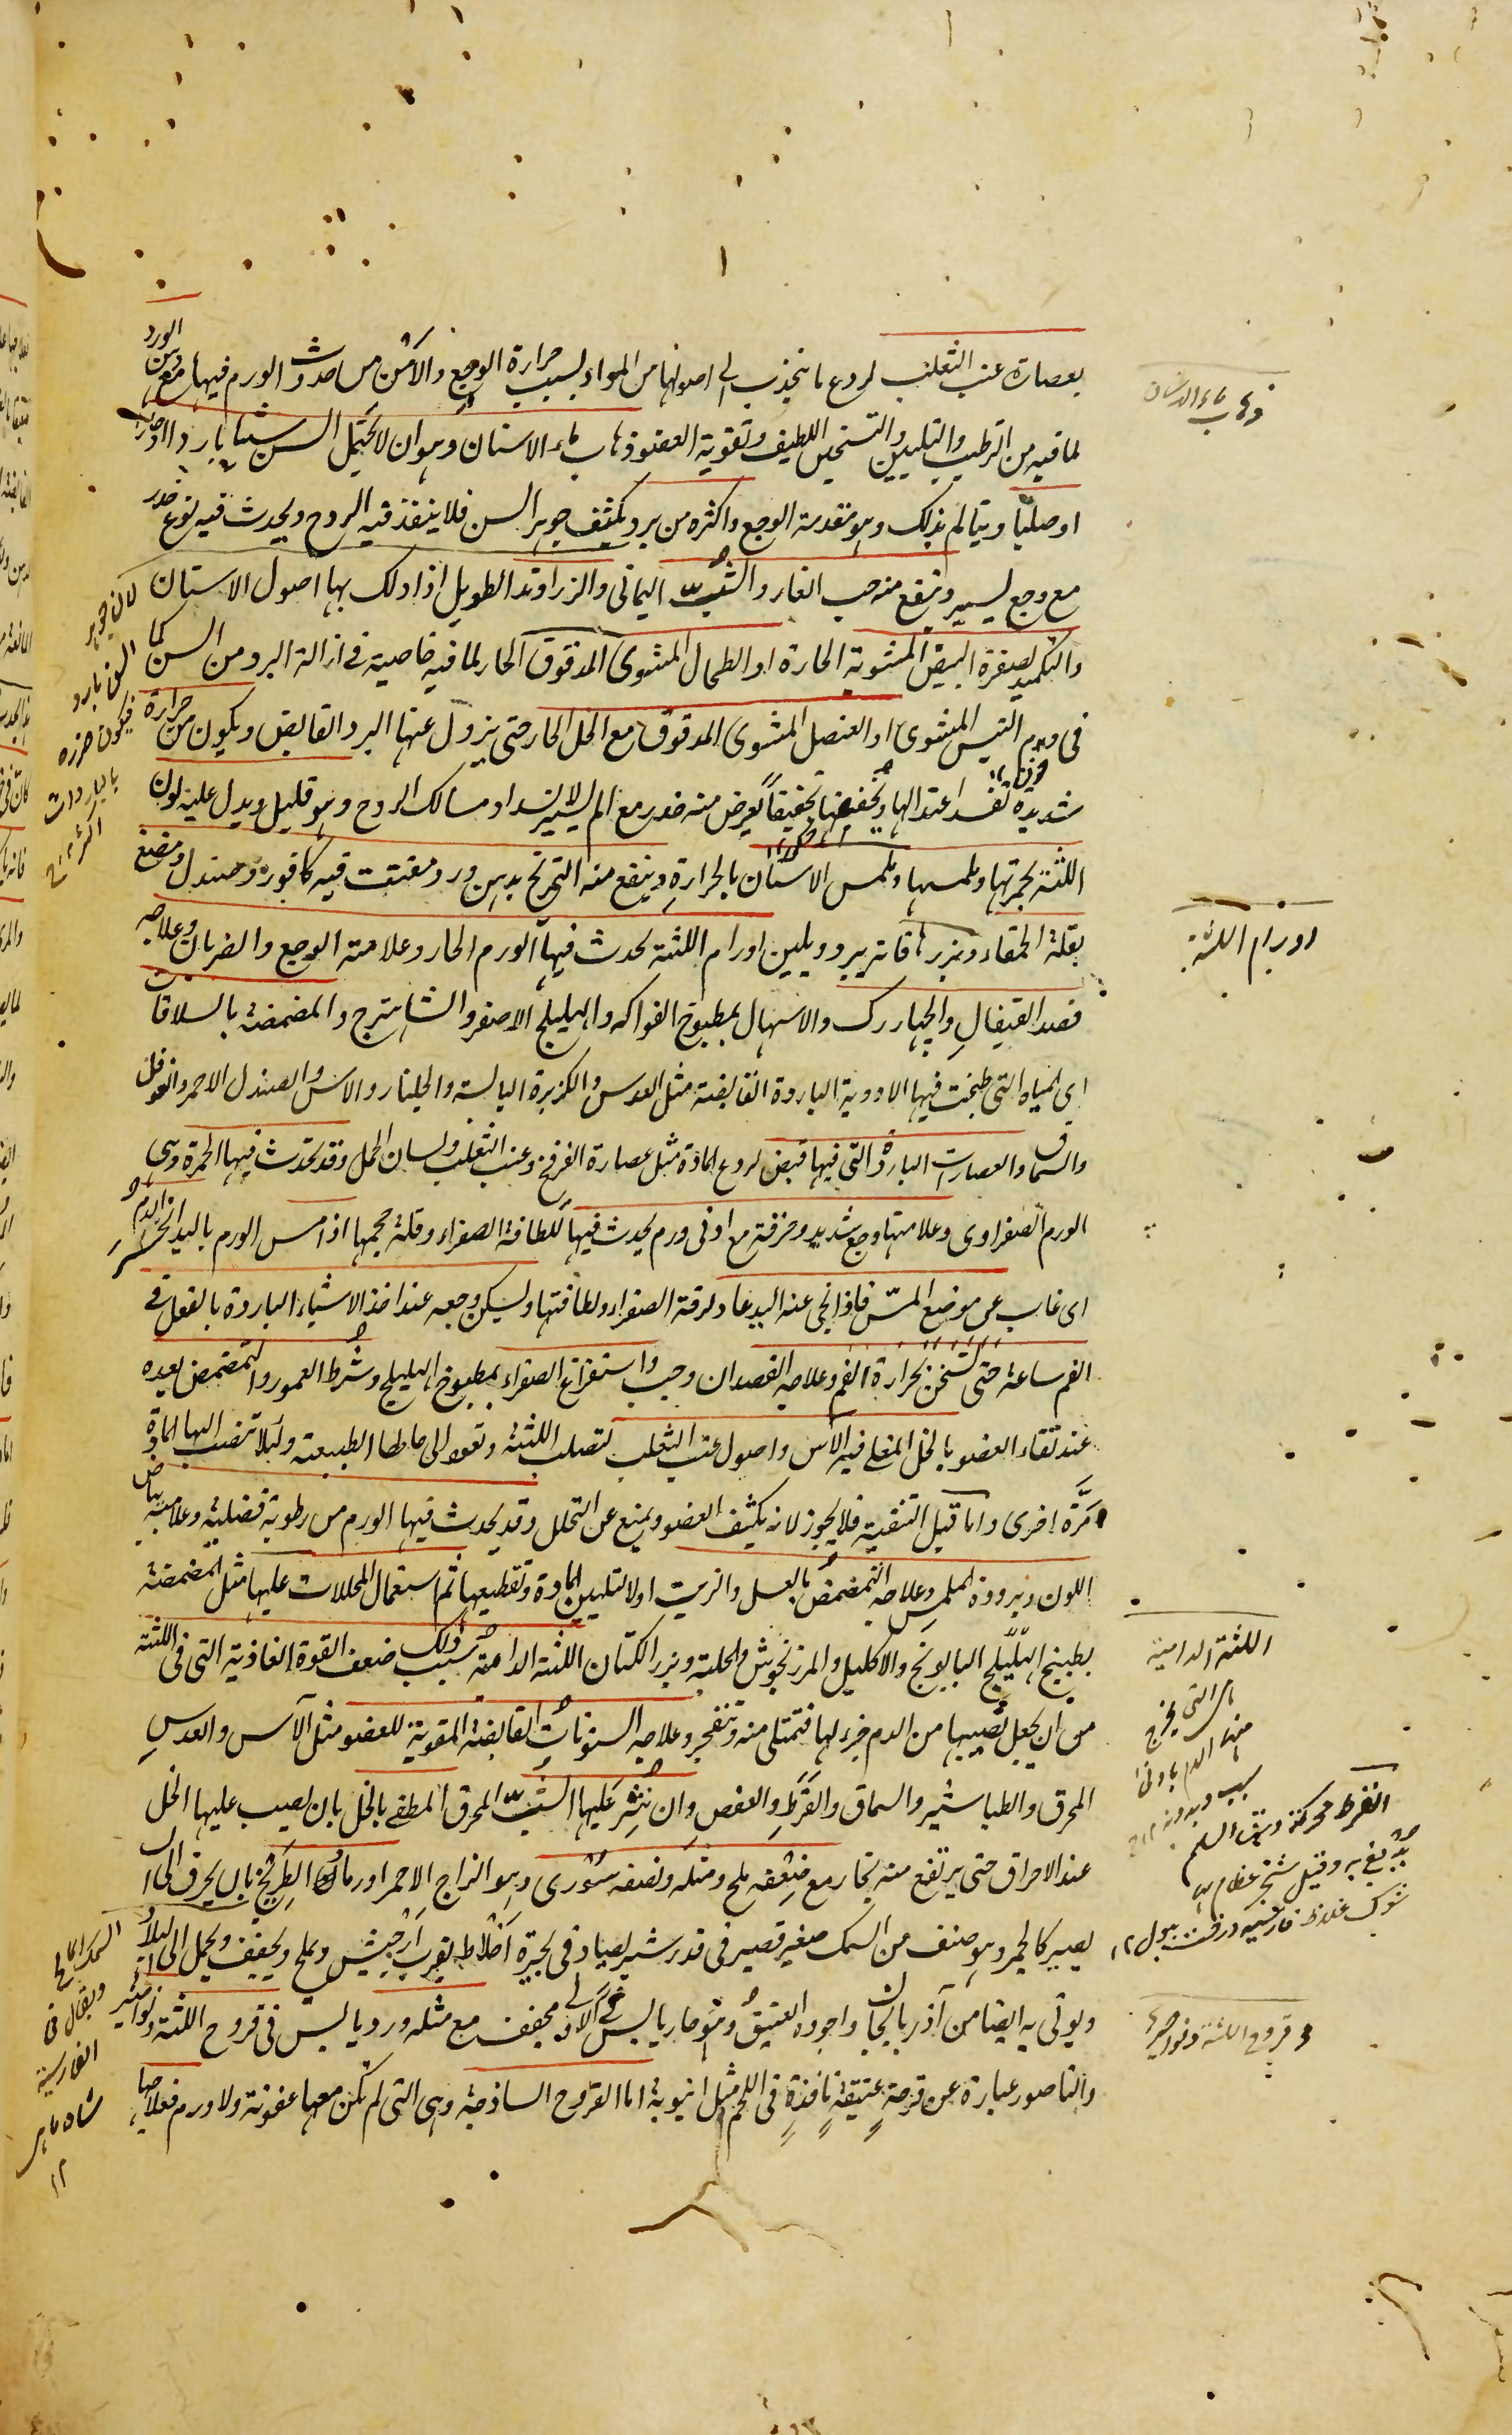 بعصارة عنب الثعلب لردع ما ينجذب الى اصولها من المواد بسبب حرارة الوجع والامن من حدوث الورم فيها مع دهن الورد
لما فيه من الترطيب والتليين والتسخين اللطيف وتقوية العضو ذهاب ماء الاسنان وهو ان لا يحتمل السن شيئا باردا او حارا
او صلبا ويتالم بذلك وهو مقدمة الوجع واكثره من برد يكثف جوهر السن فلا ينفذ فيه الروح ويحدث فيه نوع خدر
مع وجع يسير وينفع منه حب الغار والشب اليمانى والزراوند الطويل اذا دلك بها اصول الاسنان
والتكميد بصفرة البيض المشوية الحارة او الطحال المشوى المدقوق الحار لما فيه خاصية فى ازالة البرد من السن كما
فى ودم التيس المشوى او العنصل المشوى المدقوق مع الخل الحار حتى يزول عنها البرد القابض ويكون من حرارة
شديدة تفسد اعتدالها وتجففها تجفيفاً يعرض منه خدر مع الم يسير لانسداد مسالك الروح وهو قليل ويدل عليه لون
اللثة بحمرتها وملمسها وملمس الاسنان بالحرارة وينفع منه التمريخ بدهن ورد مفتت فيه كافور وصندل ومضغ
بقلة الحمقاء وبزرها فانه يبرد ويلين اورام اللثة يحدث فيها الورم الحار وعلامته الوجع والضربان وعلاجه
فصد القيفال والچهاررك والاسهال بمطبوخ الفواكه والهليلج الاصفر والشاهترج والمضمضة بالسلاقات
اى المياه التى طبخت فيها الادوية الباردة القابضة مثل العدس والكزبرة اليابسة والجلنار والاس والصندل الاحمر والفوفل
والسماق والعصارات الباردة التى فيها قبض لردع المادة مثل عصارة الفرفخ وعنب الثعلب ولسان الحمل وقد تحدث فيها الحمرة وهى
الورم الصفراوى وعلامتها وجع شديد وحرقة مع ادنى ورم يحدث فيها للطافة الصفراء وقلة حجمها اذا مس الورم باليد انحاز الدم
اى غاب عن موضع المس فاذا نحى عنه اليد عاد لرقة الصفراء ولطافتها وليسكن وجعه عند اخذ الاشياء الباردة بالفعل فى
الفم ساعة حتى تسخن بحرارة الفم وعلاجه الفصد ان وجب واستفراغ الصفراء بمطبوخ الهليلج وشرط العمور والتمضمض بعده
عند نقاء العضو بالخل المغلى فيه الآس واصول عنب الثعلب لتصلب اللثة وتعود الى حالها الطبيعة ولئلا تنصب اليها المادة
مرة اخرى واما قبل التنقية فلا يجوز لانه يكثف العضو ويمنع عن التحلل وقد يحدث فيها الورم من رطوبة فضلية وعلامته بياض
اللون وبرودة الملمس وعلاجه التمضمض بالعسل والزيت اولا لتليين المادة وتقطيعها ثم استعمال المحللات عليها مثل المضمضة
بطبيخ الهليلج البابونج والاكليل والمرزنجوش والحلبة وبزر الكتان اللثة الدامية سبب ذلك ضعف القوة الغاذية التى فى اللثة
من ان يجعل نصيبها من الدم جزء لها فتمتلى منه وتنفجر وعلاجه السنونات القابضة المقوية للعضو مثل الآس والعدس
المحرق والطباشير والسماق والقرط والعفص وان ينثر عليها الشب المحرق المطفى بالخل بان يصب عليها الخل
عند الاحراق حتى يرتفع منه بخار مع ضعفه ملح ومثله ونصفه سورى وهو الزاج الاحمر او رماد الطريخ بان يحرق الى ان
يصير كالجمر وهو صنف من السمك صغير قصير فى قدر شبر يصاد فى بحيرة اخلاط بقرب ارجيش ويملح ويجفف ويحمل الى البلاد
ويؤتى به ايضا من آذربايجان واجوده العتيق وهو حار يابس فى الاولى مجفف مع مثله ورد يابس فى قروح اللثة ونواصير
والناصور عبارة عن قرحة عتيقة نافذة فى اللحم مثل انبوبة اما القروح الساذجة وهى التى لم تكن معها عفونة ولا ورم فعلاجها
ذهاب ماء الاسنان
اورام اللثة
اللثة الدامية
هى التى يخرج
منها الدم بادنى
القرط محركة ورق السلم
يدبغ به وقيل شجر عظام لها
شوك غلاظ فارسيه درخت ببول ١٢
قروح اللثة ونواصيرها
لان جوهر
السن بارد
فيكون ضرره
بالباردات
اكثر ١٢
السمك المالح
ويقال فى
الفارسية
شاه ماهى
١٢